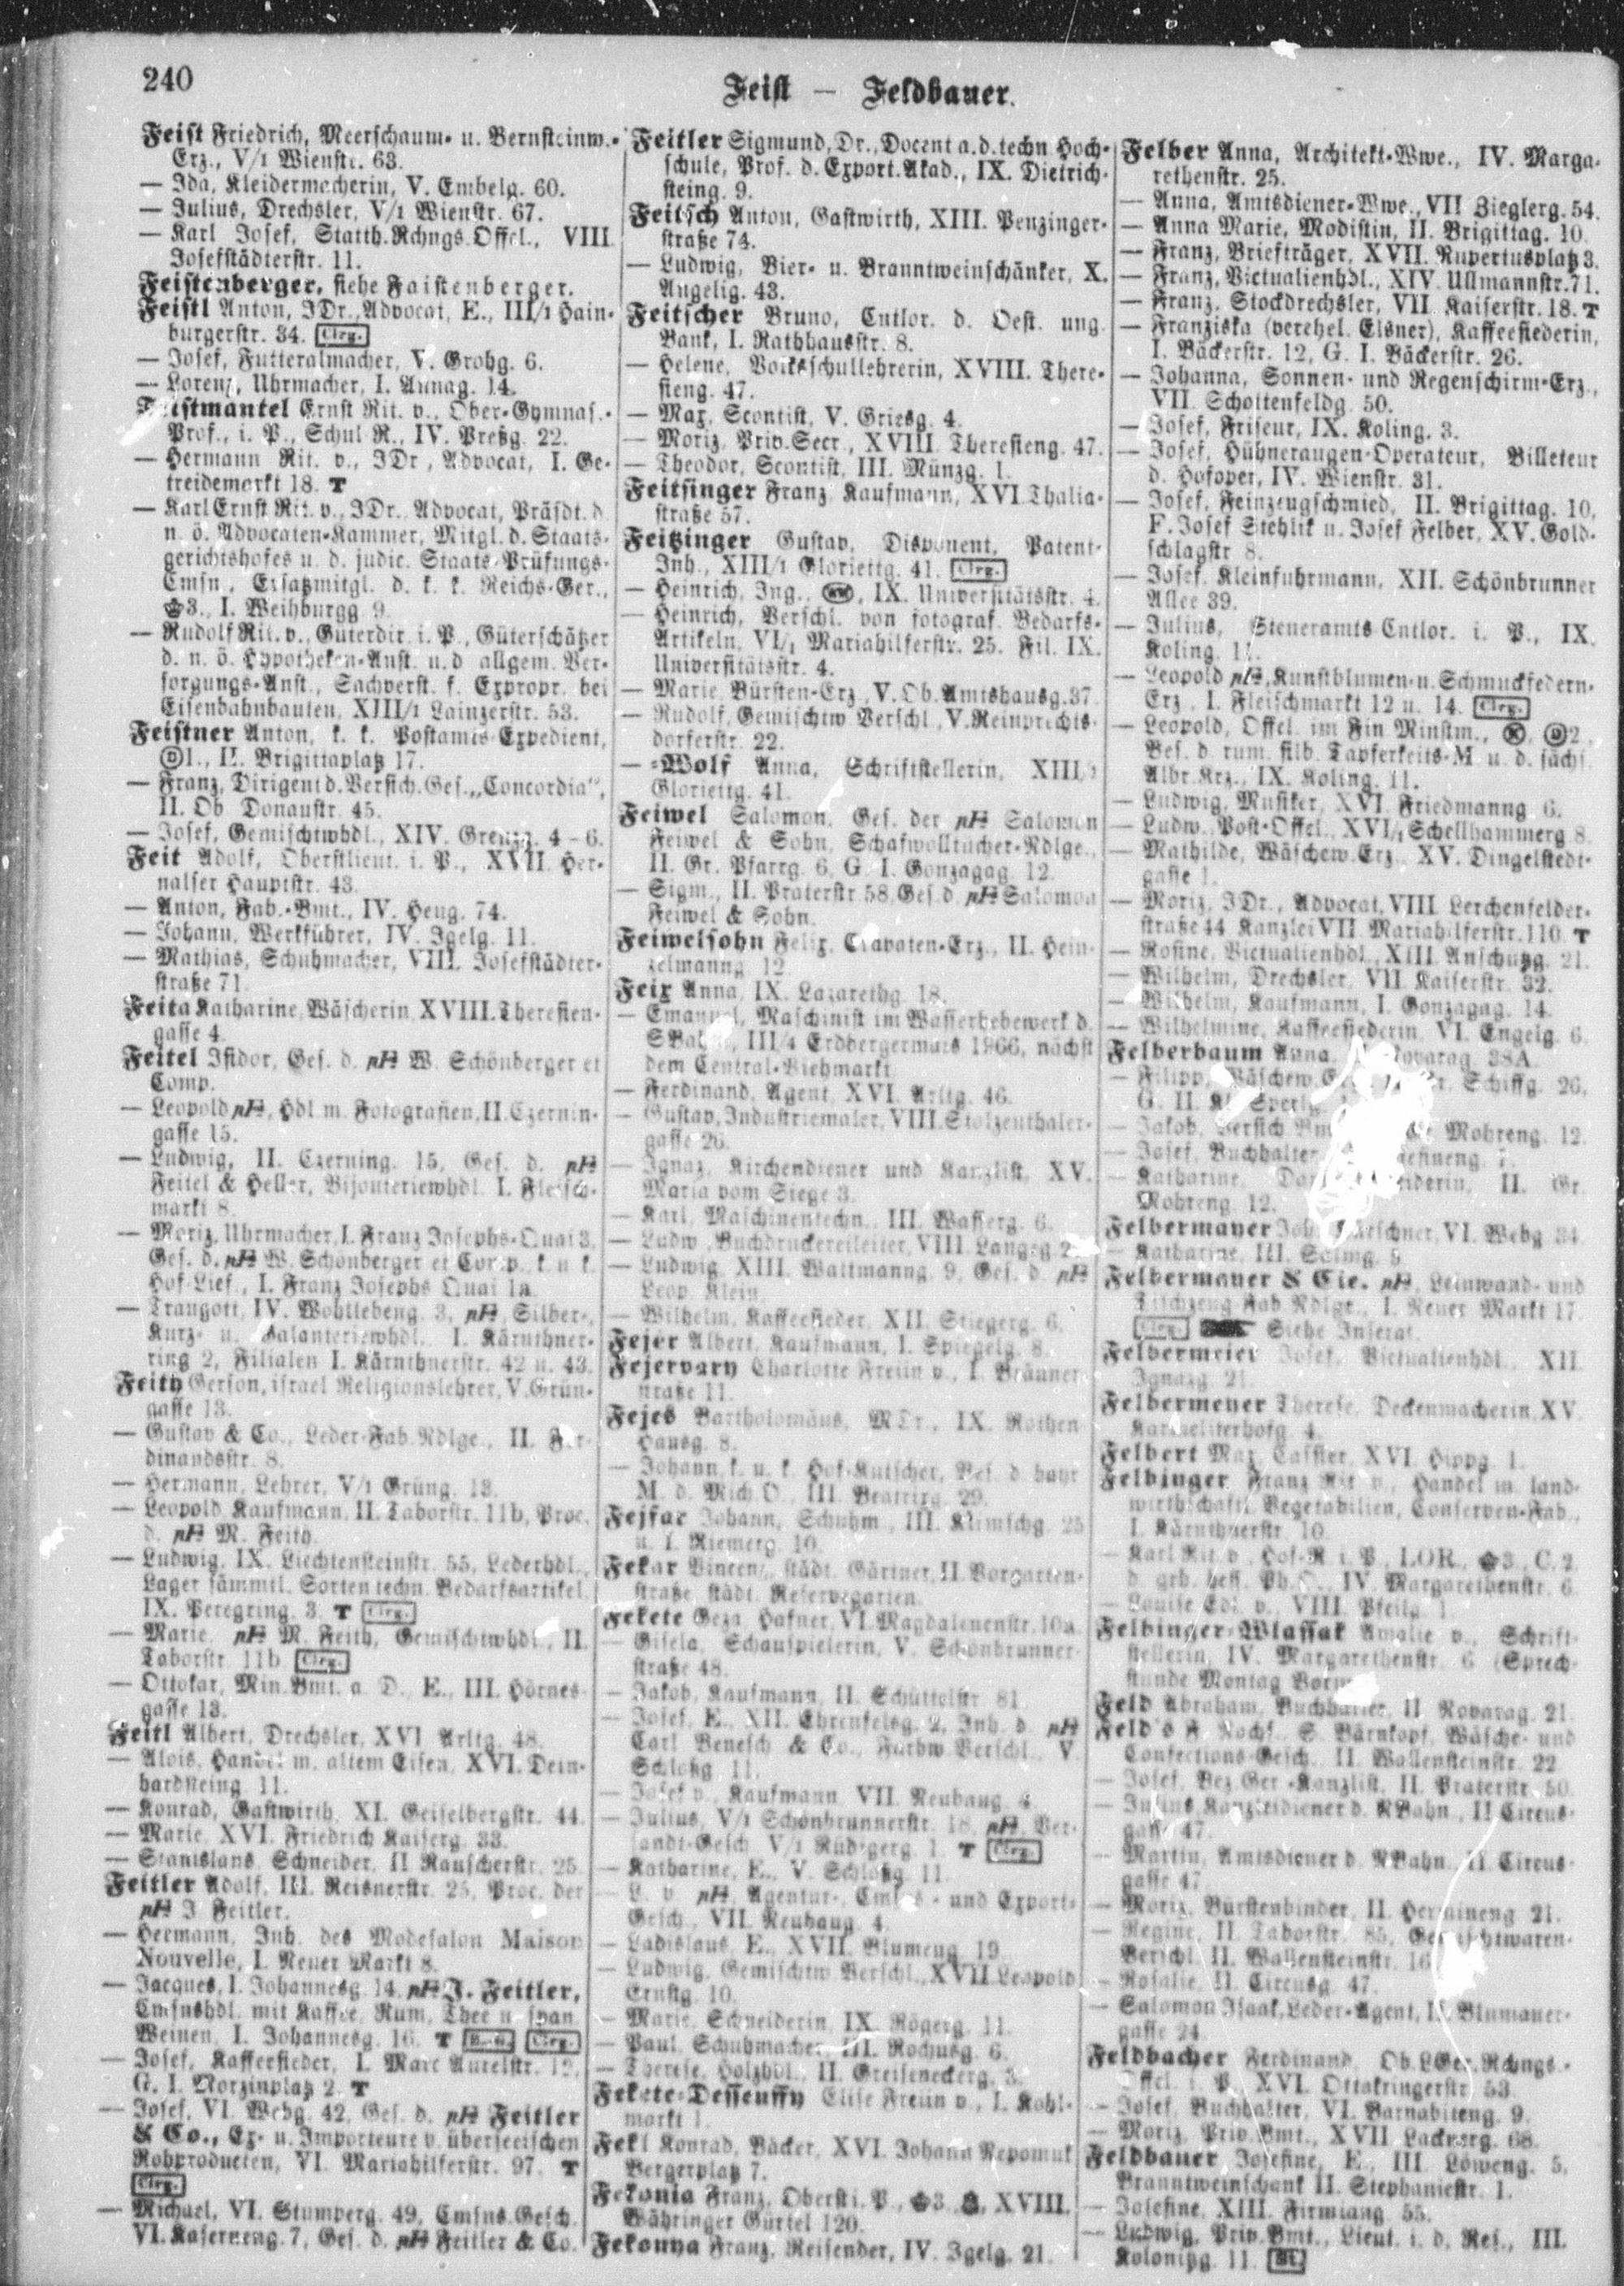 240
Feist — Feldbauer.
Feist Friedrich, Meerschaum- u. Bernsteinw.-
Erz., V/1 Wienstr. 63.
— Ida, Kleidermacherin, V. Embelg. 60.
— Julius, Drechsler, V/1 Wienstr. 67.
— Karl Josef, Statth.Rchngs.Offcl., VIII.
Josefstädterstr. 11.
Feistenberger, siehe Faistenberger.
Feistl Anton, JDr., Advocat, E., III/1 Hain-
burgerstr. 34. Clrg.
— Josef, Futteralmacher, V. Grohg. 6.
— Lorenz, Uhrmacher, I. Annag. 14.
Feistmantel Ernst Rit. v., Ober-Gymnas.-
Prof., i. P., Schul R., IV. Preßg. 22.
— Hermann Rit. v., JDr., Advocat, I. Ge-
treidemarkt 18. T
— Karl Ernst Rit. v., JDr., Advocat, Präsdt. d.
n. ö. Advocaten-Kammer, Mitgl. d. Staats-
gerichtshofes u. d. judic. Staats-Prüfungs-
Cmsn., Ersatzmitgl. d. k. k. Reichs-Ger.,
3., I. Weihburgg. 9.
— Rudolf Rit. v., Güterdir. i. P., Güterschätzer
d. n. ö. Hypotheken-Anst. u. d. allgem. Ver-
sorgungs-Anst., Sachverst. f. Expropr. bei
Eisenbahnbauten, XIII/1 Lainzerstr. 53.
Feistner Anton, k. k. Postamts-Expedient,
1., II. Brigittaplatz 17.
— Franz, Dirigent d. Versich. Ges. „Concordia“,
II. Ob. Donaustr. 45.
— Josef, Gemischtwhdl., XIV. Grenzg. 4–6.
Feit Adolf, Oberstlieut. i. P., XVII. Her-
nalser Hauptstr. 43.
— Anton, Fab.-Bmt., IV. Heug. 74.
— Johann, Werkführer, IV. Igelg. 11.
— Mathias, Schuhmacher, VIII. Josefstädter-
straße 71.
Feita Katharine, Wäscherin, XVIII. Theresien-
gasse 4.
Feitel Isidor, Ges. d. pH W. Schönberger et
Comp.
— Leopold pH, Hdl. m. Fotografien, II. Czernin-
gasse 15.
— Ludwig, II. Czerning. 15, Ges. d. pH
Feitel & Heller, Bijouteriewhdl. I. Fleisch-
markt 8.
— Moriz, Uhrmacher, I. Franz Josephs-Quai 3,
Ges. d. pH W. Schönberger et Comp., k. u. k.
Hof-Lief., I. Franz Josephs Quai 1a.
— Traugott, IV. Wohllebeng. 3, pH, Silber-,
Kurz- u. Galanteriewhdl. I. Kärnthner-
ring 2, Filialen I. Kärnthnerstr. 42 u. 43.
Feith Gerson, israel. Religionslehrer, V. Grün-
gasse 13.
— Gustav & Co., Leder-Fab.Ndlge., II. Fer-
dinandsstr. 8.
— Hermann, Lehrer, V/1 Grüng. 13.
— Leopold, Kaufmann, II. Taborstr. 11b, Proc.
d. pH M. Feith.
— Ludwig, IX. Liechtensteinstr. 55, Lederhdl.,
Lager sämmtl. Sorten techn. Bedarfsartikel,
IX. Peregring. 3. T Clrg.
— Marie, pH M. Feith, Gemischtwhdl., II.
Taborstr. 11b Clrg.
— Ottokar, Min.Bmt. a. D., E., III. Hörnes-
gasse 13.
Feitl Albert, Drechsler, XVI. Arltg. 48.
— Alois, Handel m. altem Eisen, XVI. Dein-
hardsteing. 11.
— Konrad, Gastwirth, XI. Geiselbergstr. 44.
— Marie, XVI. Friedrich Kaiserg. 33.
— Stanislaus, Schneider, II. Rauscherstr. 25.
Feitler Adolf, III. Reisnerstr. 25, Proc. der
pH J. Feitler.
— Hermann, Inh. des Modesalon Maison
Nouvelle, I. Neuer Markt 8.
— Jacques, I. Johannesg. 14, pH J. Feitler,
Cmsnshdl. mit Kaffee, Rum, Thee u. span.
Weinen, I. Johannesg. 16. T Clrg.
— Josef, Kaffeesieder, I. Marc Aurelstr. 12,
G. I. Morzinplatz 2. T
— Josef, VI. Webg. 42, Ges. d. pH Feitler
& Co., Ex- u. Importeure v. überseeischen
Rohproducten, VI. Mariahilferstr. 97. T
Clrg.
— Michael, VI. Stumperg. 49, Cmsns.Gesch.
VI. Kaserneng. 7, Ges. d. pH Feitler & Co.
Feitler Sigmund, Dr., Docent a. d. techn. Hoch-
schule, Prof. d. Export.Akad., IX. Dietrich-
steing. 9.
Feitsch Anton, Gastwirth, XIII. Penzinger-
straße 74.
— Ludwig, Bier- u. Branntweinschänker, X.
Angelig. 43.
Feitscher Bruno, Cntlor. d. Oest. ung.
Bank, I. Rathhausstr. 8.
— Helene, Volksschullehrerin, XVIII. There-
sieng. 47.
— Max, Scontist, V. Griesg. 4.
— Moriz, Priv.Secr., XVIII. Theresieng. 47.
— Theodor, Scontist, III. Münzg. 1.
Feitsinger Franz, Kaufmann, XVI. Thalia-
straße 57.
Feitzinger Gustav, Disponent, Patent-
Inh., XIII/1 Gloriettg. 41. Clrg.
— Heinrich, Ing., IX. Universitätsstr. 4.
— Heinrich, Verschl. von fotograf. Bedarfs-
Artikeln, VI/1 Mariahilferstr. 25. Fil. IX.
Universitätsstr. 4.
— Marie, Bürsten-Erz., V. Ob. Amtshausg. 37.
— Rudolf, Gemischtw.Verschl., V. Reinprechts-
dorferstr. 22.
— -Wolf Anna, Schriftstellerin, XIII/1
Gloriettg. 41.
Feiwel Salomon, Ges. der pH Salomon
Feiwel & Sohn, Schafwolltücher-Ndlge.,
II. Gr. Pfarrg. 6, G. I. Gonzagag. 12.
— Sigm., II. Praterstr. 58, Ges. d. pH Salomon
Feiwel & Sohn.
Feiwelsohn Felix, Cravaten-Erz., II. Hein-
zelmanng. 12
Feix Anna, IX. Lazarethg. 18.
— Emanuel, Maschinist im Wasserhebewerk d.
III/4 Erdbergermais 1966, nächst
dem Central-Viehmarkt.
— Ferdinand, Agent, XVI. Arltg. 46.
— Gustav, Industriemaler, VIII. Stolzenthaler-
gasse 26.
— Ignaz, Kirchendiener und Kanzlist, XV.
Maria vom Siege 3.
— Karl, Maschinentechn., III. Wasserg. 6.
— Ludw., Buchdruckereileiter, VIII. Langeg.
— Ludwig, XIII. Wattmanng. 9, Ges. d. pH
Leop. Klein.
— Wilhelm, Kaffeesieder, XII. Stiegerg. 6.
Fejer Albert, Kaufmann, I. Spiegelg. 8.
Fejervary Charlotte Freiin v., I. Bräuner-
straße 11.
Fejes Bartholomäus, MDr., IX. Rothen
Hausg. 8.
— Johann, k. u. k. Hof-Kutscher, Bes. d. bayr.
M. d. Mich.O., III. Beatrixg. 29.
Fejfar Johann, Schuhm., III. Klimschg. 25
u. I. Riemerg. 10.
Fekar Vincenz, städt. Gärtner, II. Vorgarten-
straße, städt. Reservegarten.
Fekete Geza, Hafner, VI. Magdalenenstr. 10a.
— Gisela, Schauspielerin, V. Schönbrunner-
straße 48.
— Jakob, Kaufmann, II. Schüttelstr. 81.
— Josef, E., XII. Ehrenfelsg. 2, Inh. d. pH
Carl Benesch & Co., Farbw.Verschl., V.
Schloßg. 11.
— Josef v., Kaufmann, VII. Neubaug. 4.
— Julius, V/1 Schönbrunnerstr. 18, pH, Ver-
sandt-Gesch., V/1 Rüdigerg. 1. T Clrg.
— Katharine, E., V. Schloßg. 11.
— L. v. pH, Agentur-, Cmsns- und Export-
Gesch., VII. Neubaug. 4.
— Ladislaus, E., XVII. Blumeng. 19.
— Ludwig, Gemischtw.Verschl., XVII. Leopold
Ernstg. 10.
— Marie, Schneiderin, IX. Rögerg. 11.
— Paul, Schuhmacher, III. Rochusg. 6.
— Therese, Holzhdl., II. Greiseneckerg. 3.
Fekete-Dessenffy Elise Freiin v., I. Kohl-
markt 1.
Fekl Konrad, Bäcker, XVI. Johann Nepomuk
Bergerplatz 7.
Fekonia Franz, Oberst i. P., 3. XVIII.
Währinger Gürtel 120.
Fekonya Franz, Reisender, IV. Igelg. 21.
Felber Anna, Architekt-Wwe., IV. Marga-
rethenstr. 25.
— Anna, Amtsdiener-Wwe., VII. Zieglerg. 54.
— Anna Marie, Modistin, II. Brigittag. 10.
— Franz, Briefträger, XVII. Rupertusplatz 3.
— Franz, Victualienhdl., XIV. Ullmannstr. 71.
— Franz, Stockdrechsler, VII. Kaiserstr. 18. T
— Franziska (verehel. Elsner), Kaffeesiederin,
I. Bäckerstr. 12, G. I. Bäckerstr. 26.
— Johanna, Sonnen- und Regenschirm-Erz.,
VII. Schottenfeldg. 50.
— Josef, Friseur, IX. Koling. 3.
— Josef, Hühneraugen-Operateur, Billeteur
d. Hofoper, IV. Wienstr. 31.
— Josef, Feinzeugschmied, II. Brigittag. 10,
F. Josef Stehlik u. Josef Felber, XV. Gold-
schlagstr. 8.
— Josef, Kleinfuhrmann, XII. Schönbrunner
Allee 39.
— Julius, Steueramts Cntlor. i. P., IX.
Koling. 11.
— Leopold pH, Kunstblumen- u. Schmuckfedern-
Erz., I. Fleischmarkt 12 u. 14. Clrg.
— Leopold, Offcl. im Fin.Minstm., 2.,
Bes. d. rum. silb. Tapferkeits-M. u. d. sächs.
Albr.Krz., IX. Koling. 11.
— Ludwig, Musiker, XVI. Friedmanng. 6.
— Ludw., Post-Offcl., XVI/1 Schellhammerg. 8.
— Mathilde, Wäschew.Erz., XV. Dingelstedt-
gasse 1.
— Moriz, JDr., Advocat, VIII. Lerchenfelder-
straße 44, Kanzlei VII. Mariahilferstr. 110. T
— Rosine, Victualienhdl., XIII. Anschützg. 21.
— Wilhelm, Drechsler, VII. Kaiserstr. 32.
— Wilhelm, Kaufmann, I. Gonzagag. 14.
— Wilhelmine, Kaffeesiederin, VI. Engelg. 6.
Felberbaum Anna, Novarag. 38A.
— Filipp, Wäschew. Schiffg. 26,
G. II. Kl. Sperlg.
— Jakob, Versich.Bmt. Mohreng. 12.
— Josef, Buchhalter 7.
— Katharine, II. Gr.
Mohreng. 12.
Felbermayer Kürschner, VI. Webg. 34.
— Katharine, III. Salmg. 9.
Felbermayer & Cie. pH, Leinwand- und
Tischzeug-Fab.Ndlge., I. Neuer Markt 17.
Clrg. Siehe Inserat.
Felbermeier Josef, Victualienhdl., XII.
Ignazg. 21.
Felbermeyer Therese, Deckenmacherin, XV.
Karmeliterhofg. 4.
Felbert Max, Cassier, XVI. Hippg. 1.
Felbinger Franz Rit. v., Handel m. land-
wirthschaftl. Vegetabilien, Conserven-Fab.,
I. Kärnthnerstr. 10.
— Karl Rit. v., Hof-R. i. P., LOR., 3., C. 2.
d. grh. hess. Ph.O., IV. Margarethenstr. 6.
— Louise Edl. v., VIII. Pfeilg. 1.
Felbinger-Wlassak Amalie v., Schrift-
stellerin, IV. Margarethenstr. 6 (Sprech-
stunde Montag Vorm.
Feld Abraham, Buchbinder, II. Novarag. 21.
Feld's F. Nachf. S. Bärnkopf, Wäsche- und
Confections-Gesch., II. Wallensteinstr. 22.
— Josef, Bez.Ger.-Kanzlist, II. Praterstr. 50.
— Julius, Kanzleidiener d. NBahn., II. Circus-
gasse 47.
— Martin, Amtsdiener d. NBahn, II. Circus-
gasse 47.
— Moriz, Bürstenbinder, II. Hermineng. 21.
— Regine, II. Taborstr. 85, Gemischtwaren-
Verschl. II. Wallensteinstr. 16
— Rosalie, II. Circusg. 47.
— Salomon Isaak, Leder-Agent, II. Blumauer-
gasse 24.
Feldbacher Ferdinand, Ob.LGer.Rchngs.-
Offcl. i. P., XVI. Ottakringerstr. 53.
— Josef, Buchhalter, VI. Barnabiteng. 9.
— Moriz, Priv.Bmt., XVII. Lacknerg. 68.
Feldbauer Josefine, E., III. Löweng. 5,
Branntweinschank II. Stephaniestr. 1.
— Josefine, XIII. Firmiang. 55.
— Ludwig, Priv.Bmt., Lieut. i. d. Res., III.
Kolonitzg. 11.